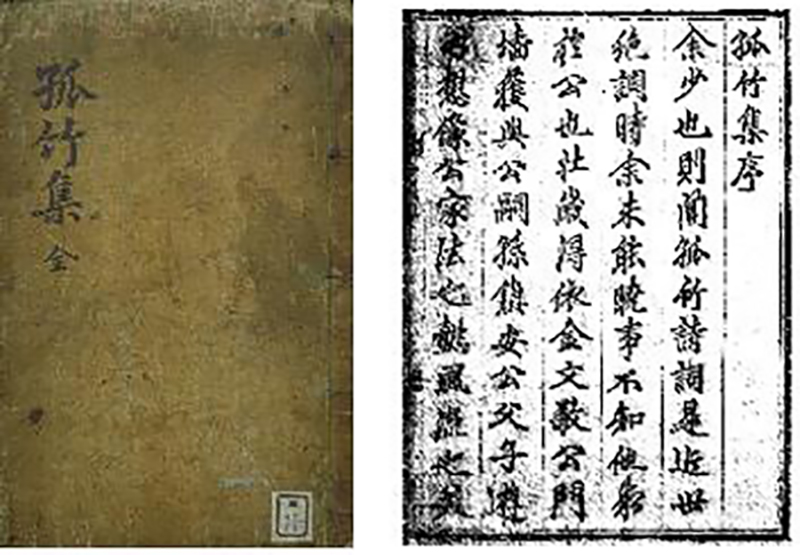 孤竹集 全
孤竹集序
余少也則聞孤竹詩調是近世
絶調時余未能曉事不知他
於公也壯歲得依金文敬公門
墻獲與公嗣孫鎭安公父子遊
想像公家法之懿風流之美